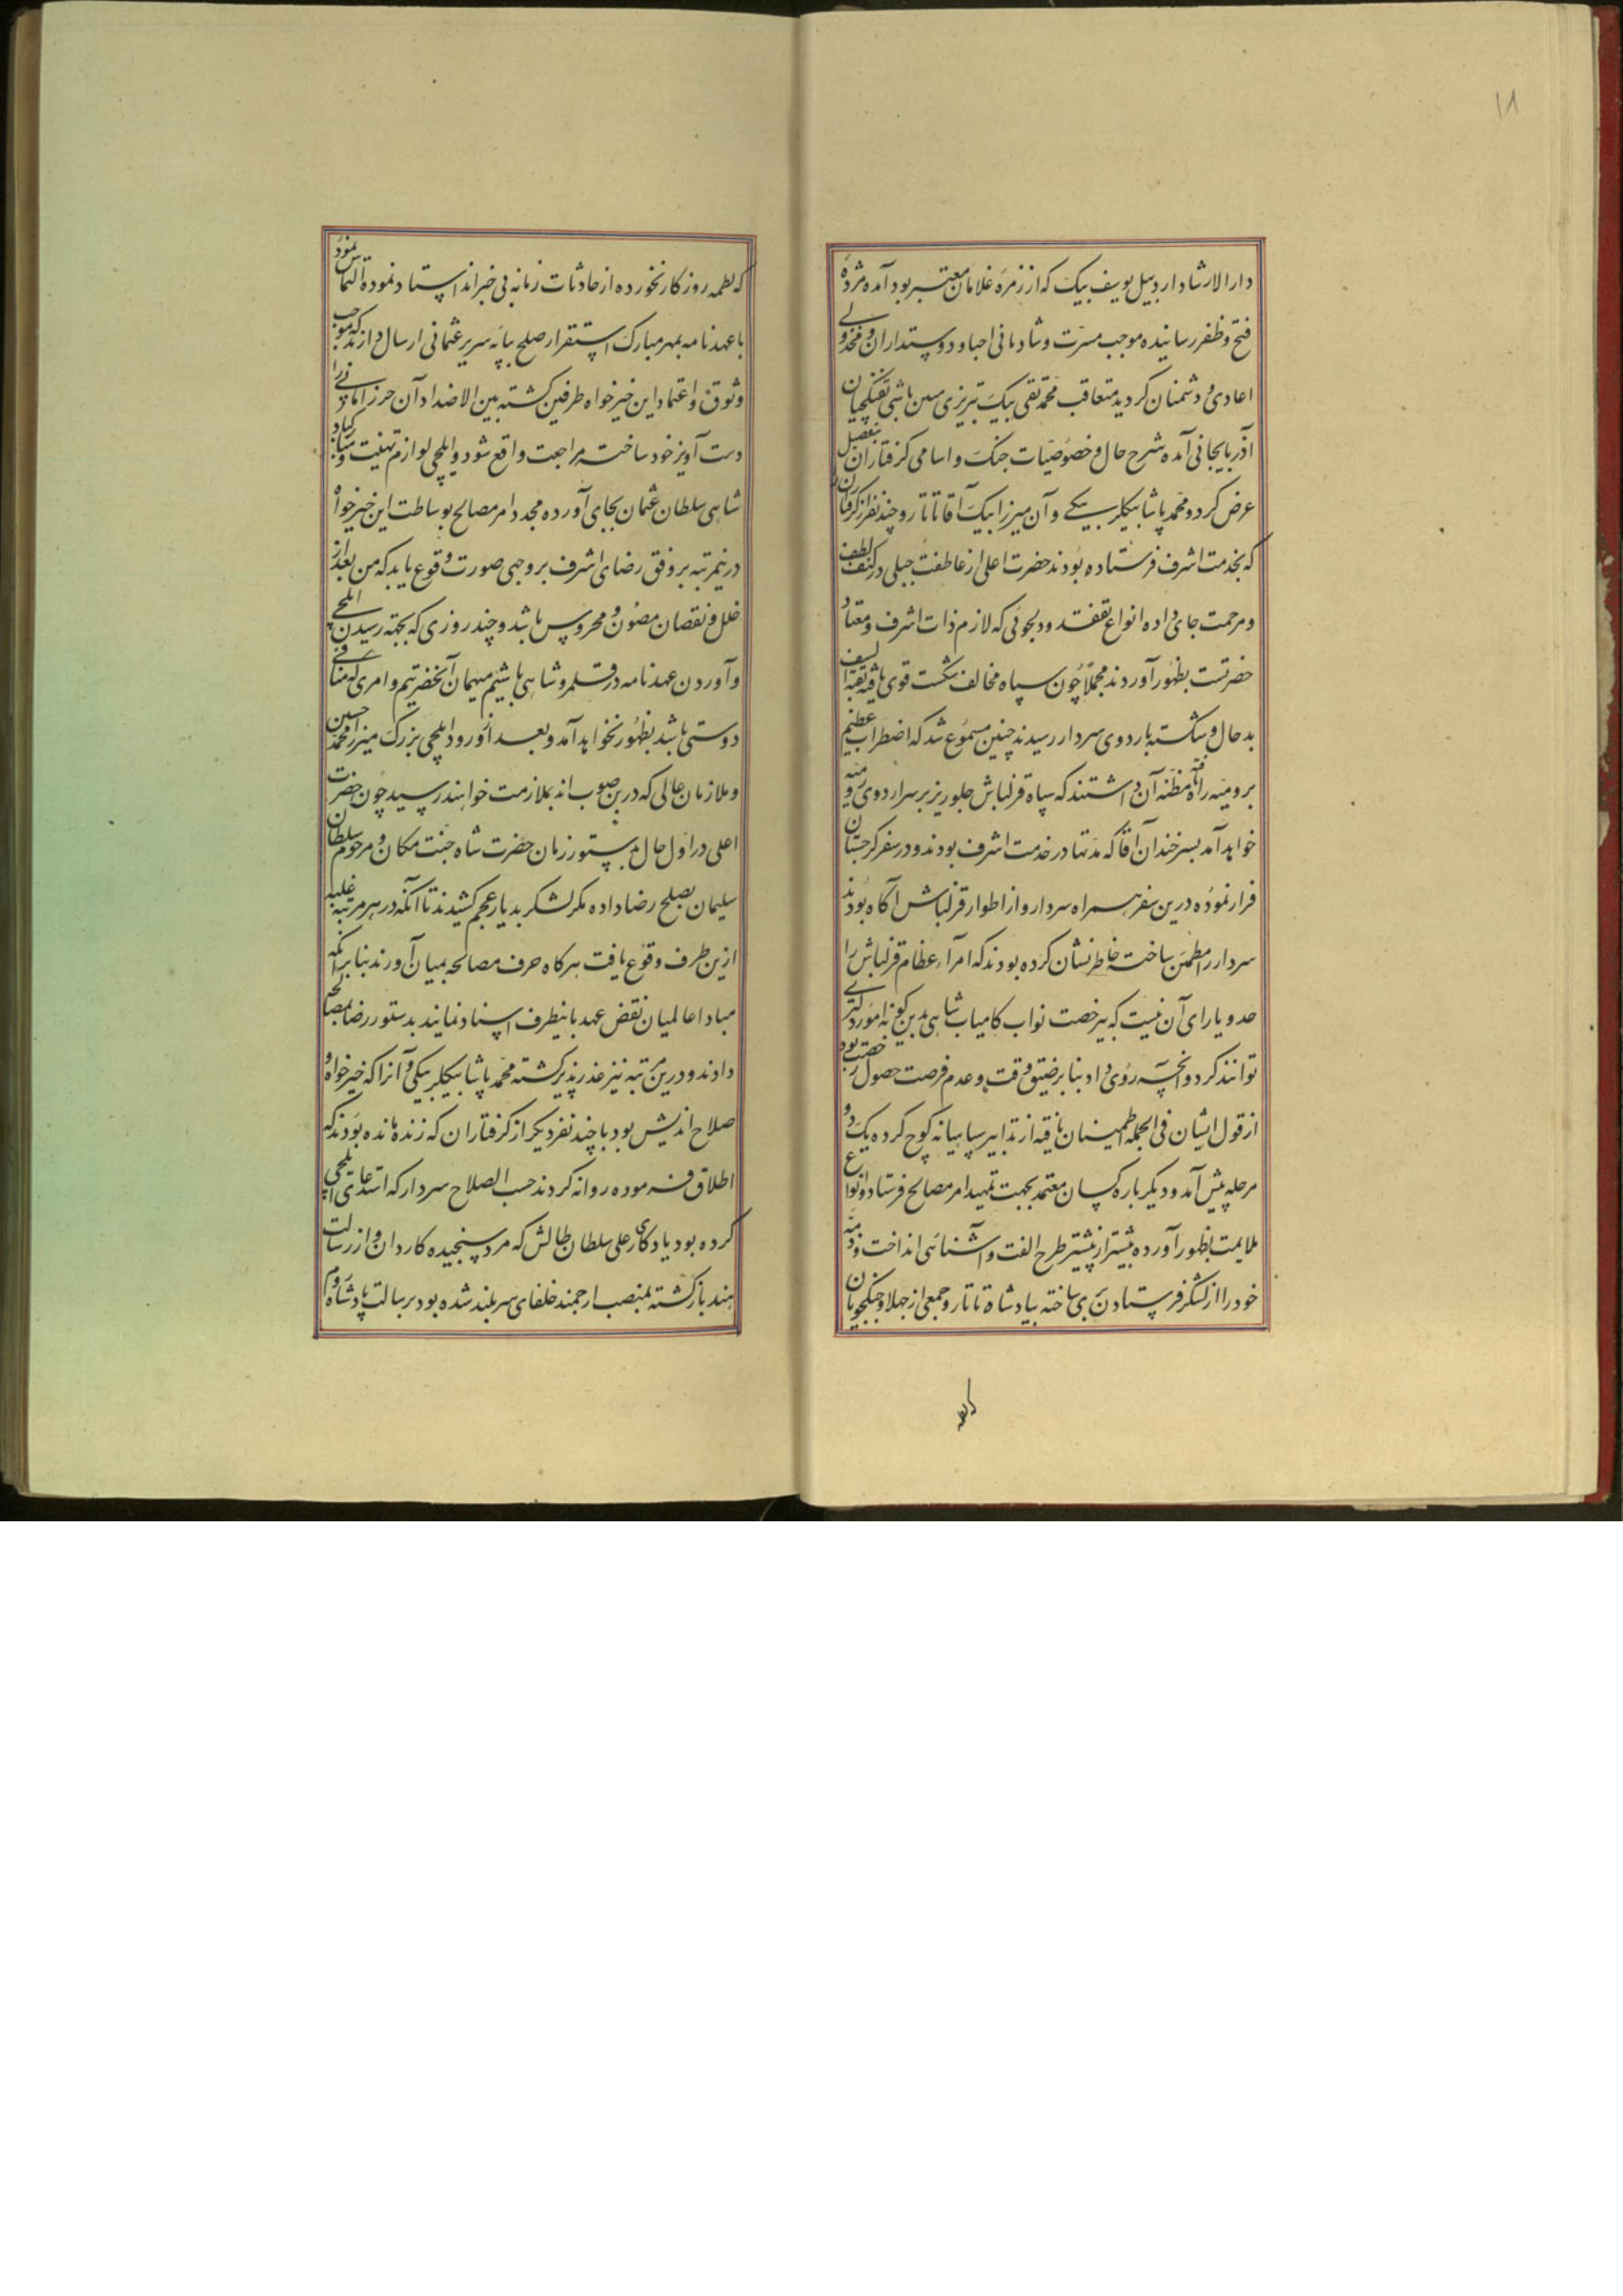 ۱۸
دارالارشاد اردبیل یوسف بیک که از زمرهٔ غلامان معتبر بود آمده مژدهٔ
فتح و ظفر رسانیده موجب مسرت و شادمانی احبا و دوستداران و مخذولی
اعادی و دشمنان کردید متعاقب محمد تقی بیک تبریزی مین باشی تفنکچیان
آذربایجانی آمده شرح حال و خصوصیات جنک و اسامی کرفتاران بتفصیل
عرض کرد و محمد پاشا بیکلربیکی وان میرزا بیک آقا تاتار و چند نفر از کرفتاران را
که بخدمت اشرف فرستاده بودند حضرت اعلی از عاطفت جبلی در کنف لطف
و مرحمت جای داده انواع تفقد و دلجوئی که لازم ذات اشرف و معتاد
حضرتست بظهور آوردند مجملا چون سپاه مخالف شکست قوی یافته بقیه السیف
بد حال و شکسته باردوی سردار رسیدند چنین مسموع شد که اضطراب عظیم
برومیه راه یافته مظنه آن داشتند که سپاه قزلباش جلوریز بر سر اردوی رومیه
خواهد آمد بسر خندان آقا که مدتها در خدمت اشرف بودند و در سفر کرجستان
فرار نموده درین سفر همراه سردار و از اطوار قزلباش آکاه بودند
سردار را مطمئن ساخته خاطر نشان کرده بودند که امراء عظام قزلباش را
حد و یارای آن نیست که بیرخصت نواب کامیاب شاهی بدین کونه امور دلیری
توانند کرد و انچه روی داد بنا بر ضیق وقت و عدم فرصت حصول رخصت بود
از قول ایشان فی الجمله اطمینان یافته از تدابیر سپاهیانه کوچ کرده یک دو
مرحله پیش آمد و دیکر باره کسان معتمد بجهت تمهید امر مصالح فرستاد و انواع
ملایمت بظهور آورده بیشتر از پیشتر طرح الفت و آشنائی انداخت و ذمه
خود را از لشکر فرستادن بری ساخته بپادشاه تاتار و جمعی از جهلا و جنکجویان
که لطمه روزکار نخورده از حادثات زمانه بی خبراند اسناد نموده التماس نمود
با عهدنامه بمهر مبارک استقرار صلح بپایه سریر عثمانی ارسال دارند که موجب
وثوق و اعتماد این خیرخواه طرفین کشته بین الاضداد آن حرز امانی را
دست آویز خود ساخته مراجعت واقع شود و ایلچی لوازم تهنیت و مبارکباد
شاهی سلطان عثمان بجای آورده مجددا امر مصالح بوساطت این خیرخواه
درینمرتبه بر وفق رضای اشرف بر وجهی صورت وقوع یابد که من بعد از
خلل و نقصان مصون و محروس باشد و چند روزی که بجهته رسیدن ایلچی
و آوردن عهدنامه در قلمرو شاهی باشیم میهمان آنحضرتیم و امری که منافی
دوستی باشد بظهور نخواهد آمد و بعد از ورود ایلچی بزرک میرزا محمد حسین
و ملازمان عالی که درین صوب اند بملازمت خواهند رسید چون حضرت
اعلی در اول حال بدستور زمان حضرت شاه جنت مکان و مرحوم سلطان
سلیمان بصلح رضا داده مکر لشکر بدیار عجم کشیدند تا آنکه در هر مرتبه غلبه
ازین طرف وقوع یافت هرکاه حرف مصالحه بمیان آورند بنا بر آنکه
مبادا عالمیان نقض عهد باینطرف اسناد نمایند بدستور رضا بمصالحه
دادند و درین مرتبه نیز عذر پذیر کشته محمد پاشا بیکلربیکی وانرا که خیرخواه و
صلاح اندیش بود با چند نفر دیکر از کرفتاران که زنده مانده بودند که
اطلاق فرموده روانه کردند حسب الصلاح سردار که استدعای ایلچی
کرده بود یادکار علی سلطان طالش که مرد سنجیده کاردان و از رسالت
هند بازکشته بمنصب ارجمند خلفای سربلند شده بود برسالت پادشاه روم